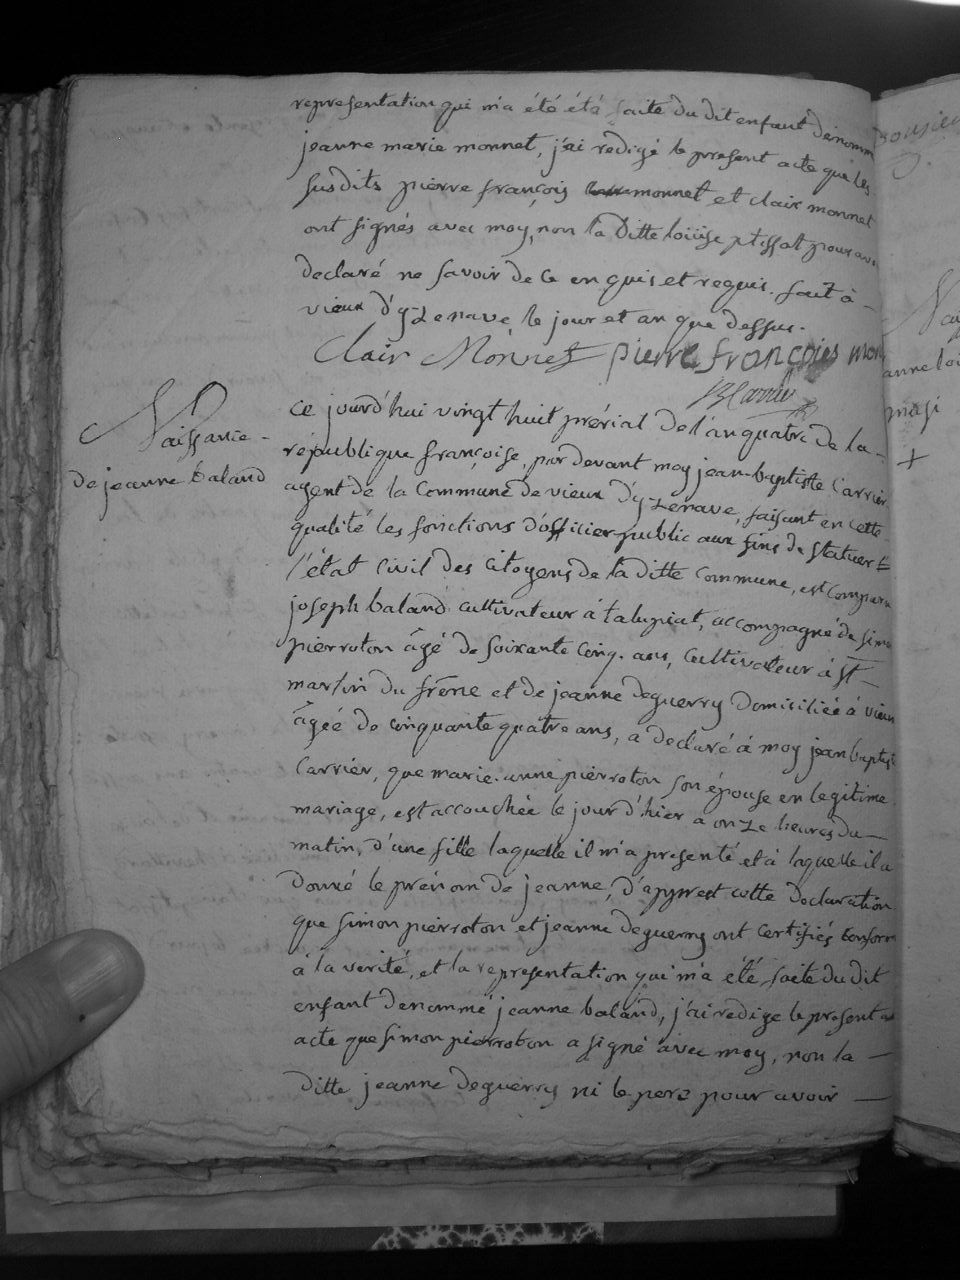 representation qui m'a été été faite du dit enfant dénommé
jeanne marie monnet, j'ai redigé le present acte que les
susdits pierre françois monnet et clair monnet
ont signés avec moy, non la ditte loüise ptissat pour avoir
declaré ne savoir de ce enquis et requis. fait à
vieux d'yzenave le jour et an que dessus.
Clair Monnet pierre françoies mon
JB Carrier
Naissance
de jeanne baland
ce jourd'hui vingt huit prérial de l'an quatre de la
république françoise, par devant moy jean-baptiste Carrier
agent de la Commune de vieux d'yzenave, faisant en cette
qualité les fonctions d'officier public aux fins de statuer
l'état Civil des Citoyens de la ditte Commune, est comparu
joseph baland cultivateur à talupiat, accompagné de simon
pierroton âgé de soixante cinq. ans, Cultivateur à St
martin du frêne et de jeanne deguerry domiciliée à vieux
âgée de cinquante quatre ans, a declaré à moy jean baptiste
Carrier, que marie-anne pierroton son épouse en legitime
mariage, est accouchée le jour d'hier a onze heures du
matin, d'une fille laquelle il m'a presenté et à laquelle il a
donné le prénom de jeanne, d'apprest cette declaration
que simon pierroton et jeanne deguerry ont certifiés conforme
à la verité, et la representation qui m'a été faite du dit
enfant denommé jeanne baland, j'ai redigé le present
acte que simon pierroton a signé avec moy, non la
ditte jeanne deguerry ni le pere pour avoir
anne loi